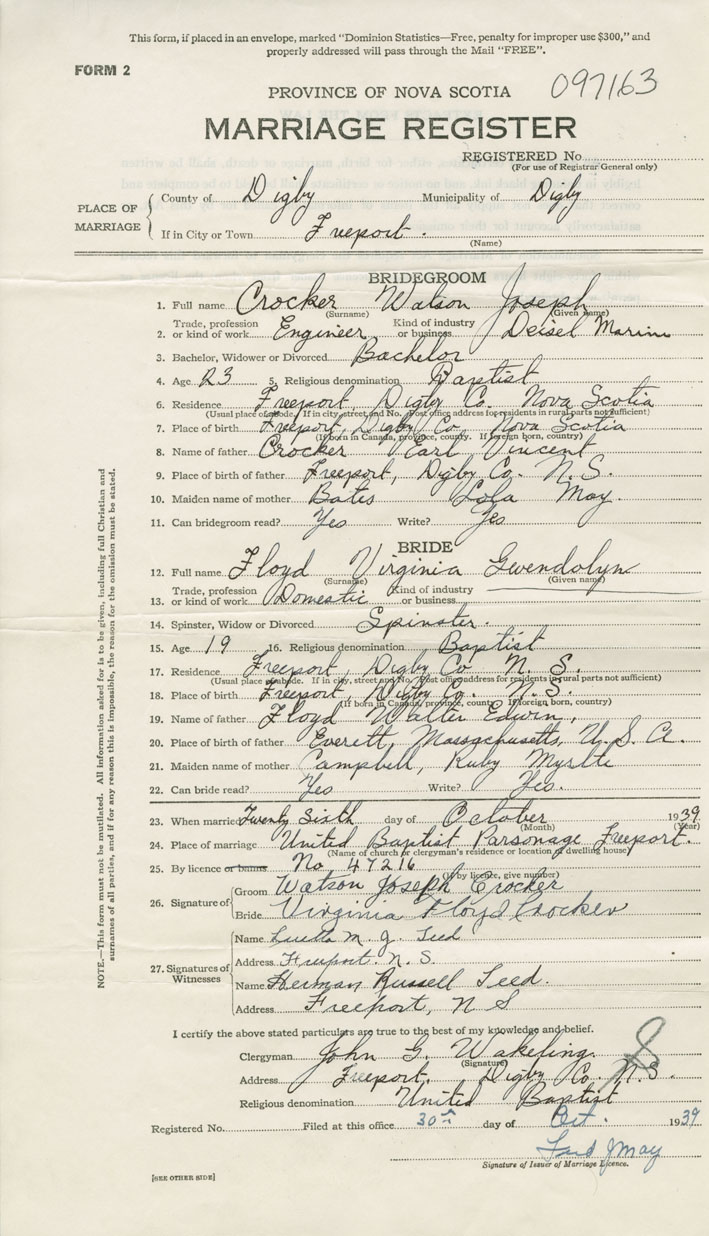 This form, if placed in an envelope, marked “Dominion Statistics—Free, penalty for improper use $300,” and
properly addressed will pass through the Mail “FREE”.
FORM 2
PROVINCE OF NOVA SCOTIA 097163
MARRIAGE REGISTER
REGISTERED No.
(For use of Registrar General only)
PLACE OF MARRIAGE
County of Digby Municipality of Digby
If in City or Town Freeport.
(Name)
BRIDEGROOM
1. Full name Crocker Watson Joseph
(Surname) (Given name)
2. Trade, profession or kind of work Engineer Kind of industry or business Deisel Marine
3. Bachelor, Widower or Divorced Bachelor
4. Age 23 5. Religious denomination Baptist
6. Residence Freeport, Digby Co. Nova Scotia
(Usual place of abode. If in city, street and No. Post office address for residents in rural parts not sufficient)
7. Place of birth Freeport, Digby Co Nova Scotia
(If born in Canada, province, county. If foreign born, country)
8. Name of father Crocker Earl Vincent
9. Place of birth of father Freeport, Digby Co. N.S.
10. Maiden name of mother Bates Lola May.
11. Can bridegroom read? Yes Write? Yes
BRIDE
12. Full name Floyd Virginia Gwendolyn
(Surname) (Given name)
13. Trade, profession or kind of work Domestic Kind of industry or business
14. Spinster, Widow or Divorced Spinster.
15. Age 19 16. Religious denomination Baptist
17. Residence Freeport, Digby Co N. S.
(Usual place of abode. If in city, street and No. Post office address for residents in rural parts not sufficient)
18. Place of birth Freeport, Digby Co. N.S.
(If born in Canada, province, county. If foreign born, country)
19. Name of father Floyd Walter Edwin,
20. Place of birth of father Everett, Massachusetts, U.S.A.
21. Maiden name of mother Campbell, Ruby Myrtle
22. Can bride read? Yes Write? Yes.
23. When married Twenty Sixth day of October 1939
(Month) (Year)
24. Place of marriage United Baptist Parsonage Freeport.
(Name of church or clergyman's residence or location of dwelling house)
25. By licence or banns No 47216
(If by licence, give number)
26. Signature of
Groom Watson Joseph Crocker
Bride Virginia Floyd Crocker
27. Signatures of Witnesses
Name Luetta M. G. Teed
Address Freeport N. S.
Name Herman Russell Teed.
Address Freeport, N S
I certify the above stated particulars are true to the best of my knowledge and belief.
Clergyman John G. Wakeling.
(Signature)
Address Freeport, Digby Co N.S.
Religious denomination United Baptist
Registered No. Filed at this office 30th day of Oct. 1939
May
Signature of Issuer of Marriage Licence.
[SEE OTHER SIDE]
NOTE.—This form must not be mutilated. All information asked for is to be given, including full Christian and
surnames of all parties, and if for any reason this is impossible, the reason for the omission must be stated.